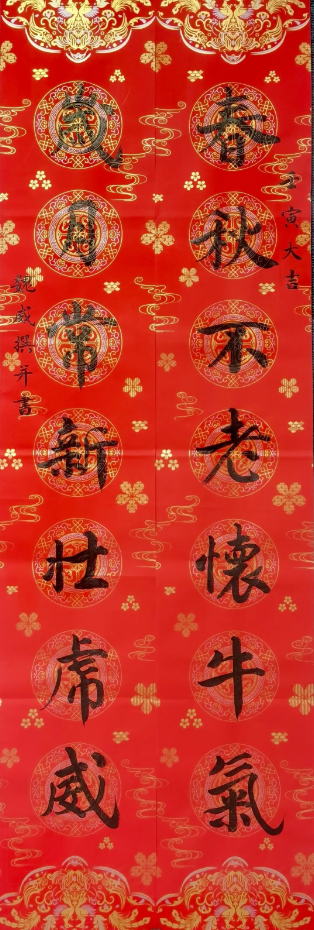 壬寅大吉
春秋不老懷牛氣
歲月常新壯虎威
魏威撰并書